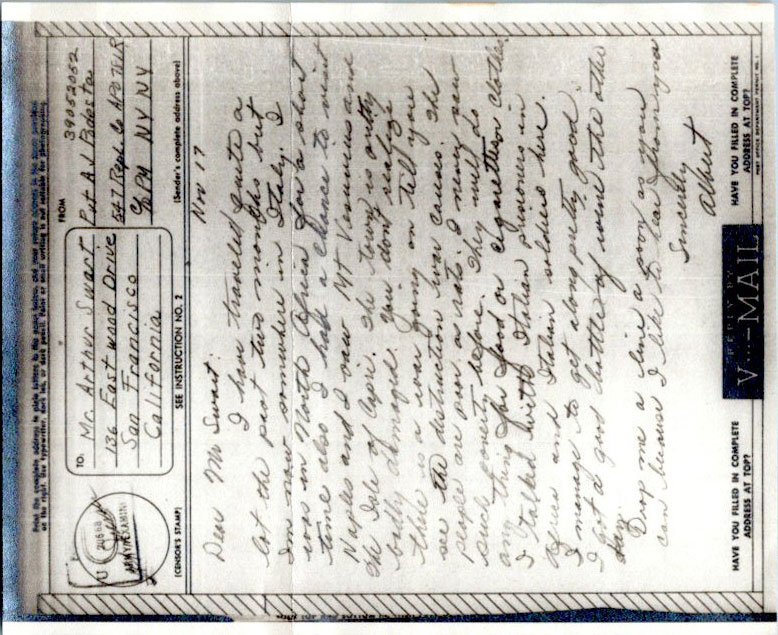 Print the complete address in plain letters in the panel below, and your return address in the space provided
on the right. Use typewriter, dark ink, or dark pencil. Faint or small writing is not suitable for photographing.
TO:
Mr. Arthur Swart
136 Eastwood Drive
San Francisco
California
FROM
39052052
Pvt A J Podesta
547 Repl. Co APO 7618
c/o PM NY NY
(CENSOR'S STAMP)
SEE INSTRUCTION NO. 2
(Sender's complete address above)
Nov 17
Dear Mr Swart:
I have traveled quite a
lot the past two months but
I'm now somewhere in Italy. I
was in North Africa for a short
time also I had a chance to visit
Naples and I saw Mt Vesuvius and
the Isle of Capri. The town is pretty
badly damaged. You don't realize
there is a war going on till you
see the destruction war causes. The
people are poor as rats. I never saw
such poverty before. They will do
any thing for food or cigarettes or clothes.
I talked with Italian prisoners in
Africa and Italian soldiers here.
I manage to get along pretty good.
I got a good bottle of wine the other
day.
Drop me a line as soon as you
can because I like to hear from you
Sincerely
Albert
HAVE YOU FILLED IN COMPLETE
ADDRESS AT TOP?
V···—MAIL
HAVE YOU FILLED IN COMPLETE
ADDRESS AT TOP?
POST OFFICE DEPARTMENT PERMIT NO.